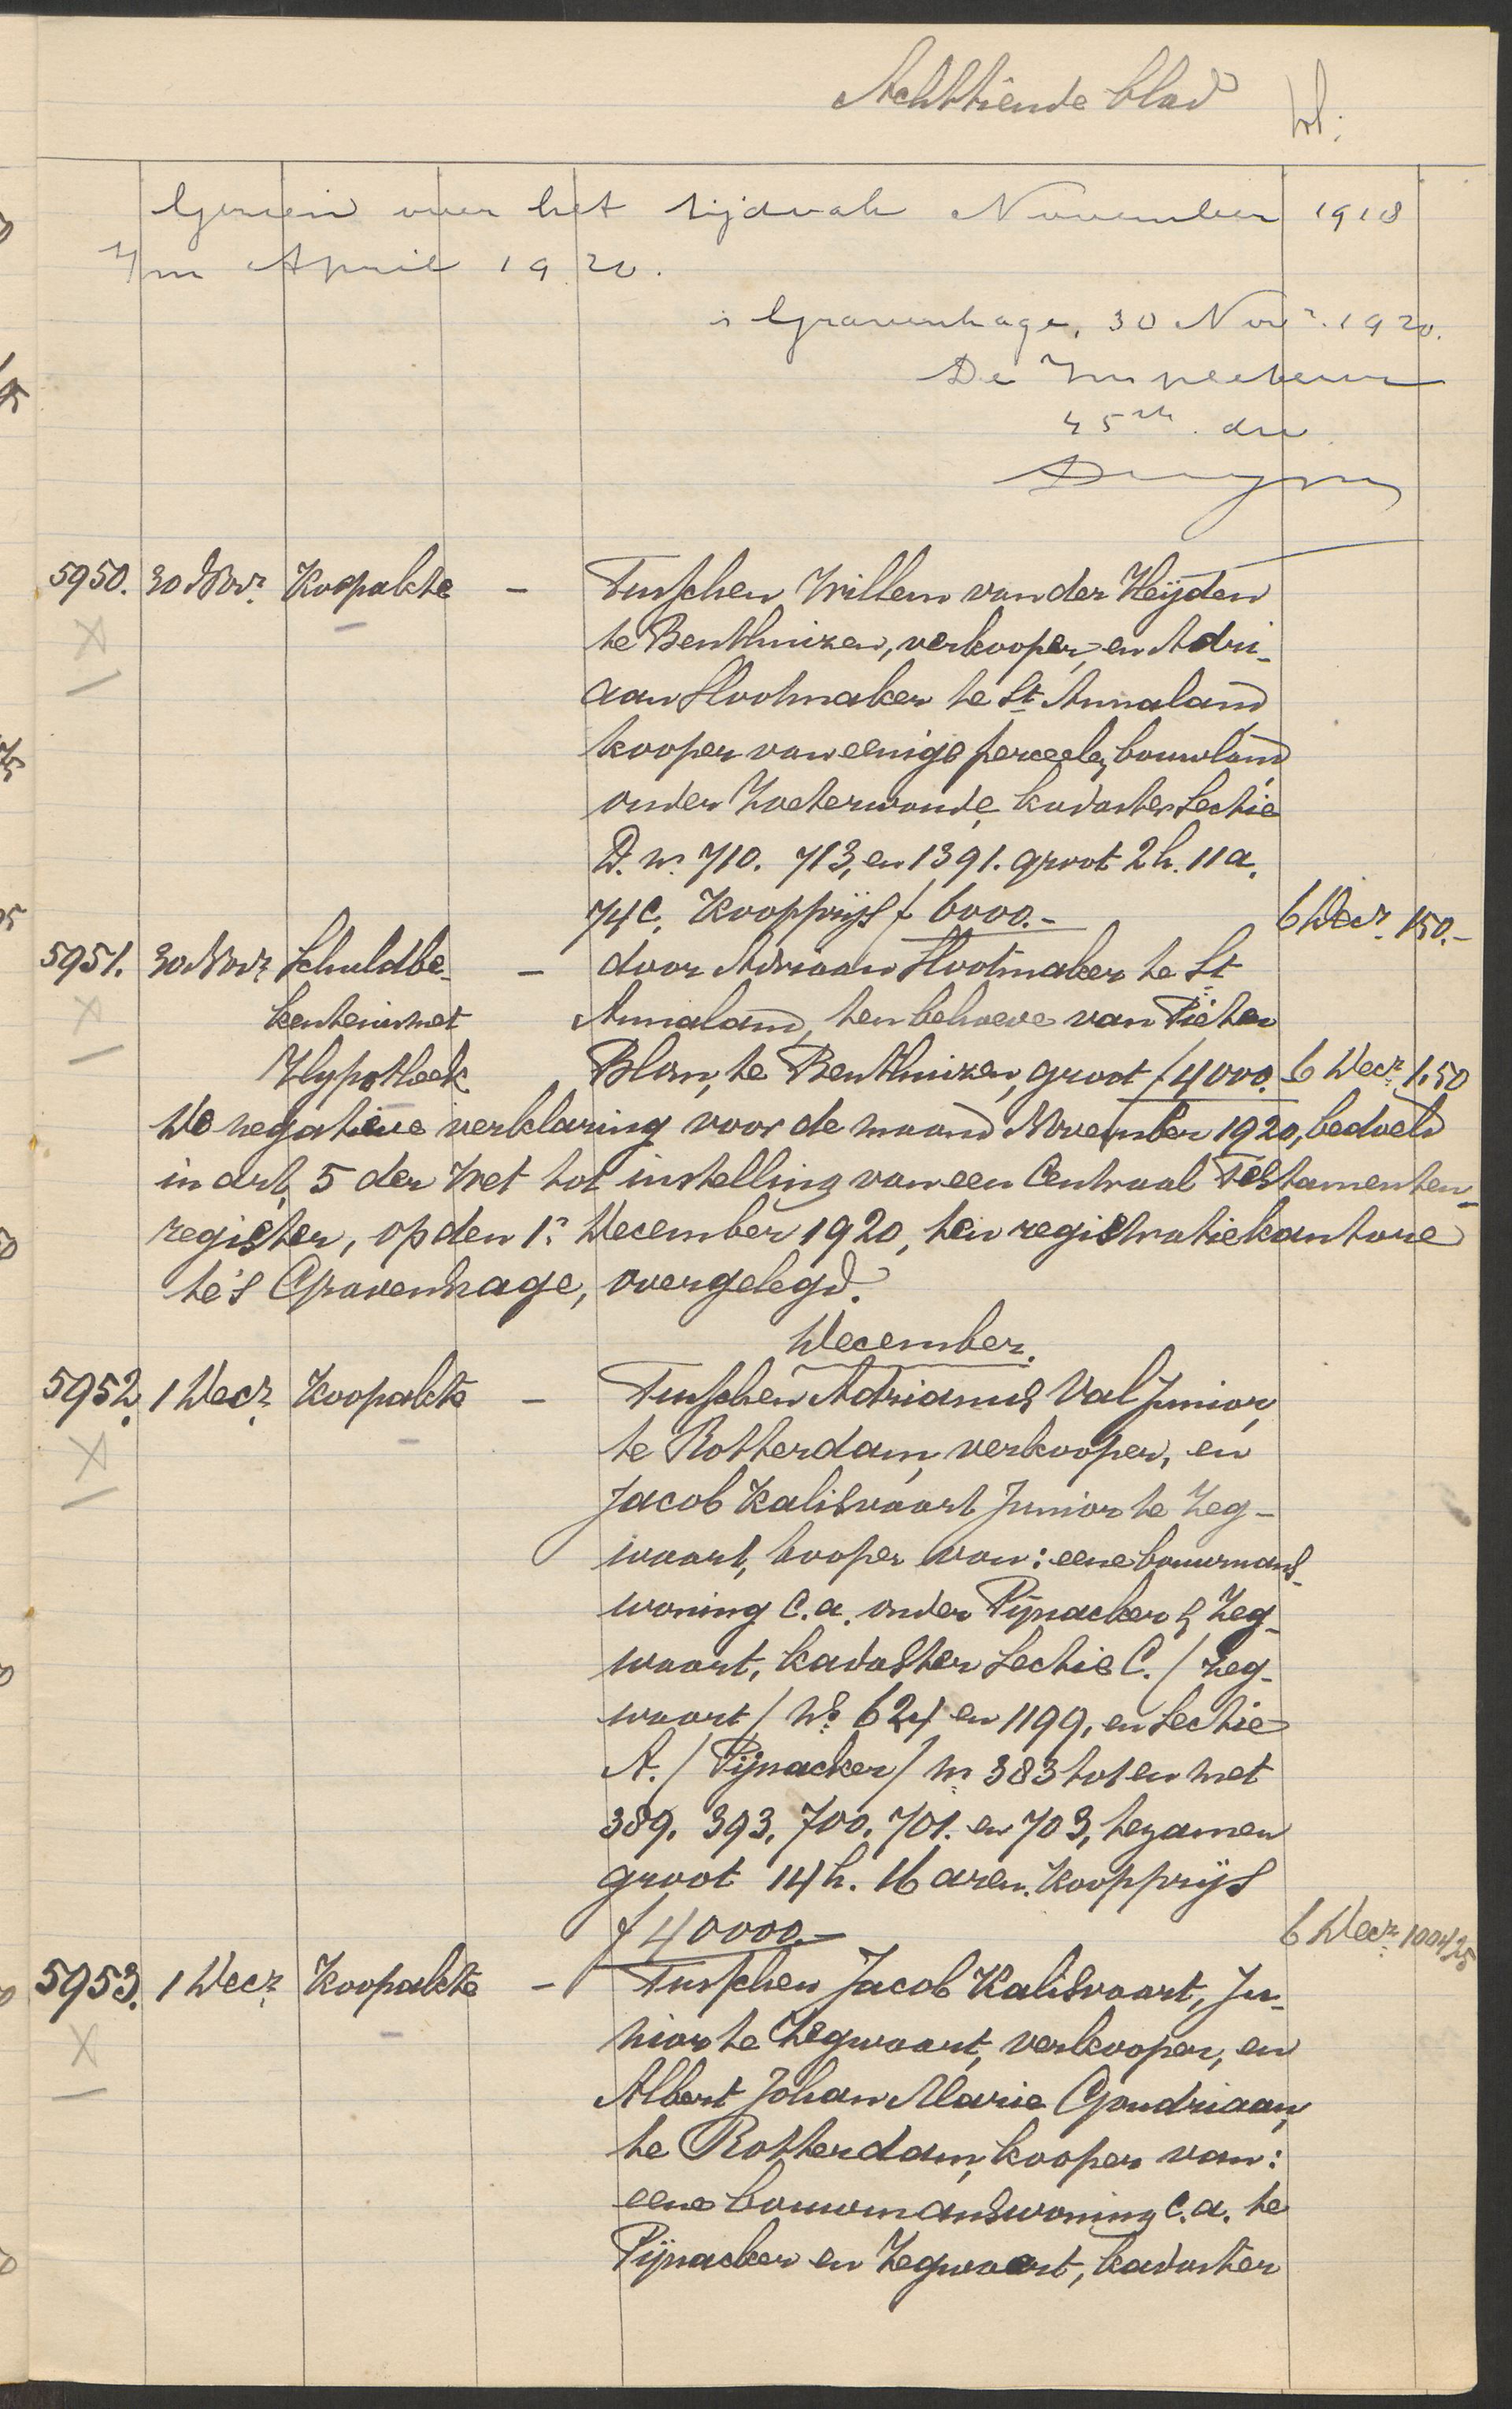 Achttiende blad
Gezien over het tijdvak November 1918
t/m April 1920.
's Gravenhage, 30 Novr. 1920.
De Inspecteur
5950. 30 Novr. Koopakte - Tusschen Willem van der Heijden
te Benthuizen, verkooper, en Adri-
aan Slootmaker te St. Annaland
kooper van eenige perceelen bouwland
onder Zoeterwoude, kadaster Sectie
D. nr. 710. 713, en 1391. groot 2 h. 11 a.
74 c. Koopprijs f 6000.- 6 Decr. 150.-
5951. 30 Novr. Schuldbe- - door Adriaan Slootmaker te St.
kentenis met Annaland, ten behoeve van Pieter
Hypotheek Blom, te Benthuizen, groot f 4000. 6 Decr. 1.50
De negatieve verklaring voor de maand November 1920, bedoeld
in art. 5 der Wet tot instelling van een Centraal Testamenten-
register, op den 1n December 1920, ten registratiekantore
te 's Gravenhage, overgelegd.
December.
5952. 1 Decr. Koopakte - Tusschen Adrianus Val Junior,
te Rotterdam, verkooper, en
Jacob Kalisvaart Junior te Zeg-
waart, kooper van: eene bouwmans-
woning c.a. onder Pijnacker & Zeg-
waart, kadaster Sectie C. / Zeg-
waart / Ns. 624 en 1199, en Sectie
A. / Pijnacker / nr. 383 tot en met
389. 393. 700. 701. en 703, tezamen
groot 14 h. 16 aren. Koopprijs
f 40000.- 6 Decr. 1004.25
5953. 1 Decr. Koopakte - Tusschen Jacob Kalisvaart, Ju-
nior te Zegwaart, verkooper, en
Albert Johan Marie Goudriaan,
te Rotterdam, kooper van:
eene bouwmanswoning c.a. te
Pijnacker en Zegwaart, kadaster